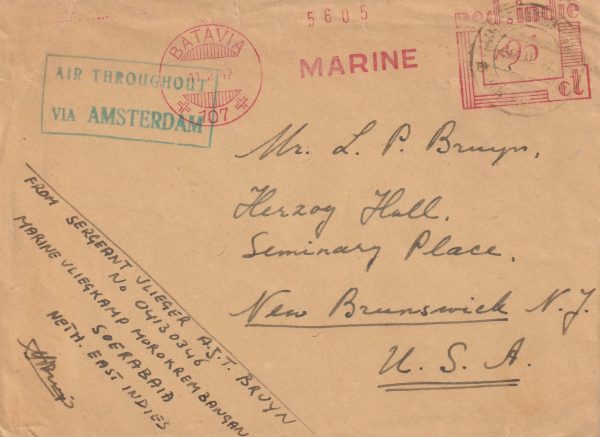 5605
ned. indie
BATAVIA
11.2.47
107
MARINE
ct
AIR THROUGHOUT
VIA AMSTERDAM
Mr. L. P. Bruyn,
Herzog Hall.
Seminary Place.
New Brunswick N.J.
U.S.A.
FROM SERGEANT VLIEGER A.J.T. BRUYN
No 04130346
MARINE VLIEGKAMP MOROKREMBANGAN
SOERABAIA
NETH. EAST INDIES